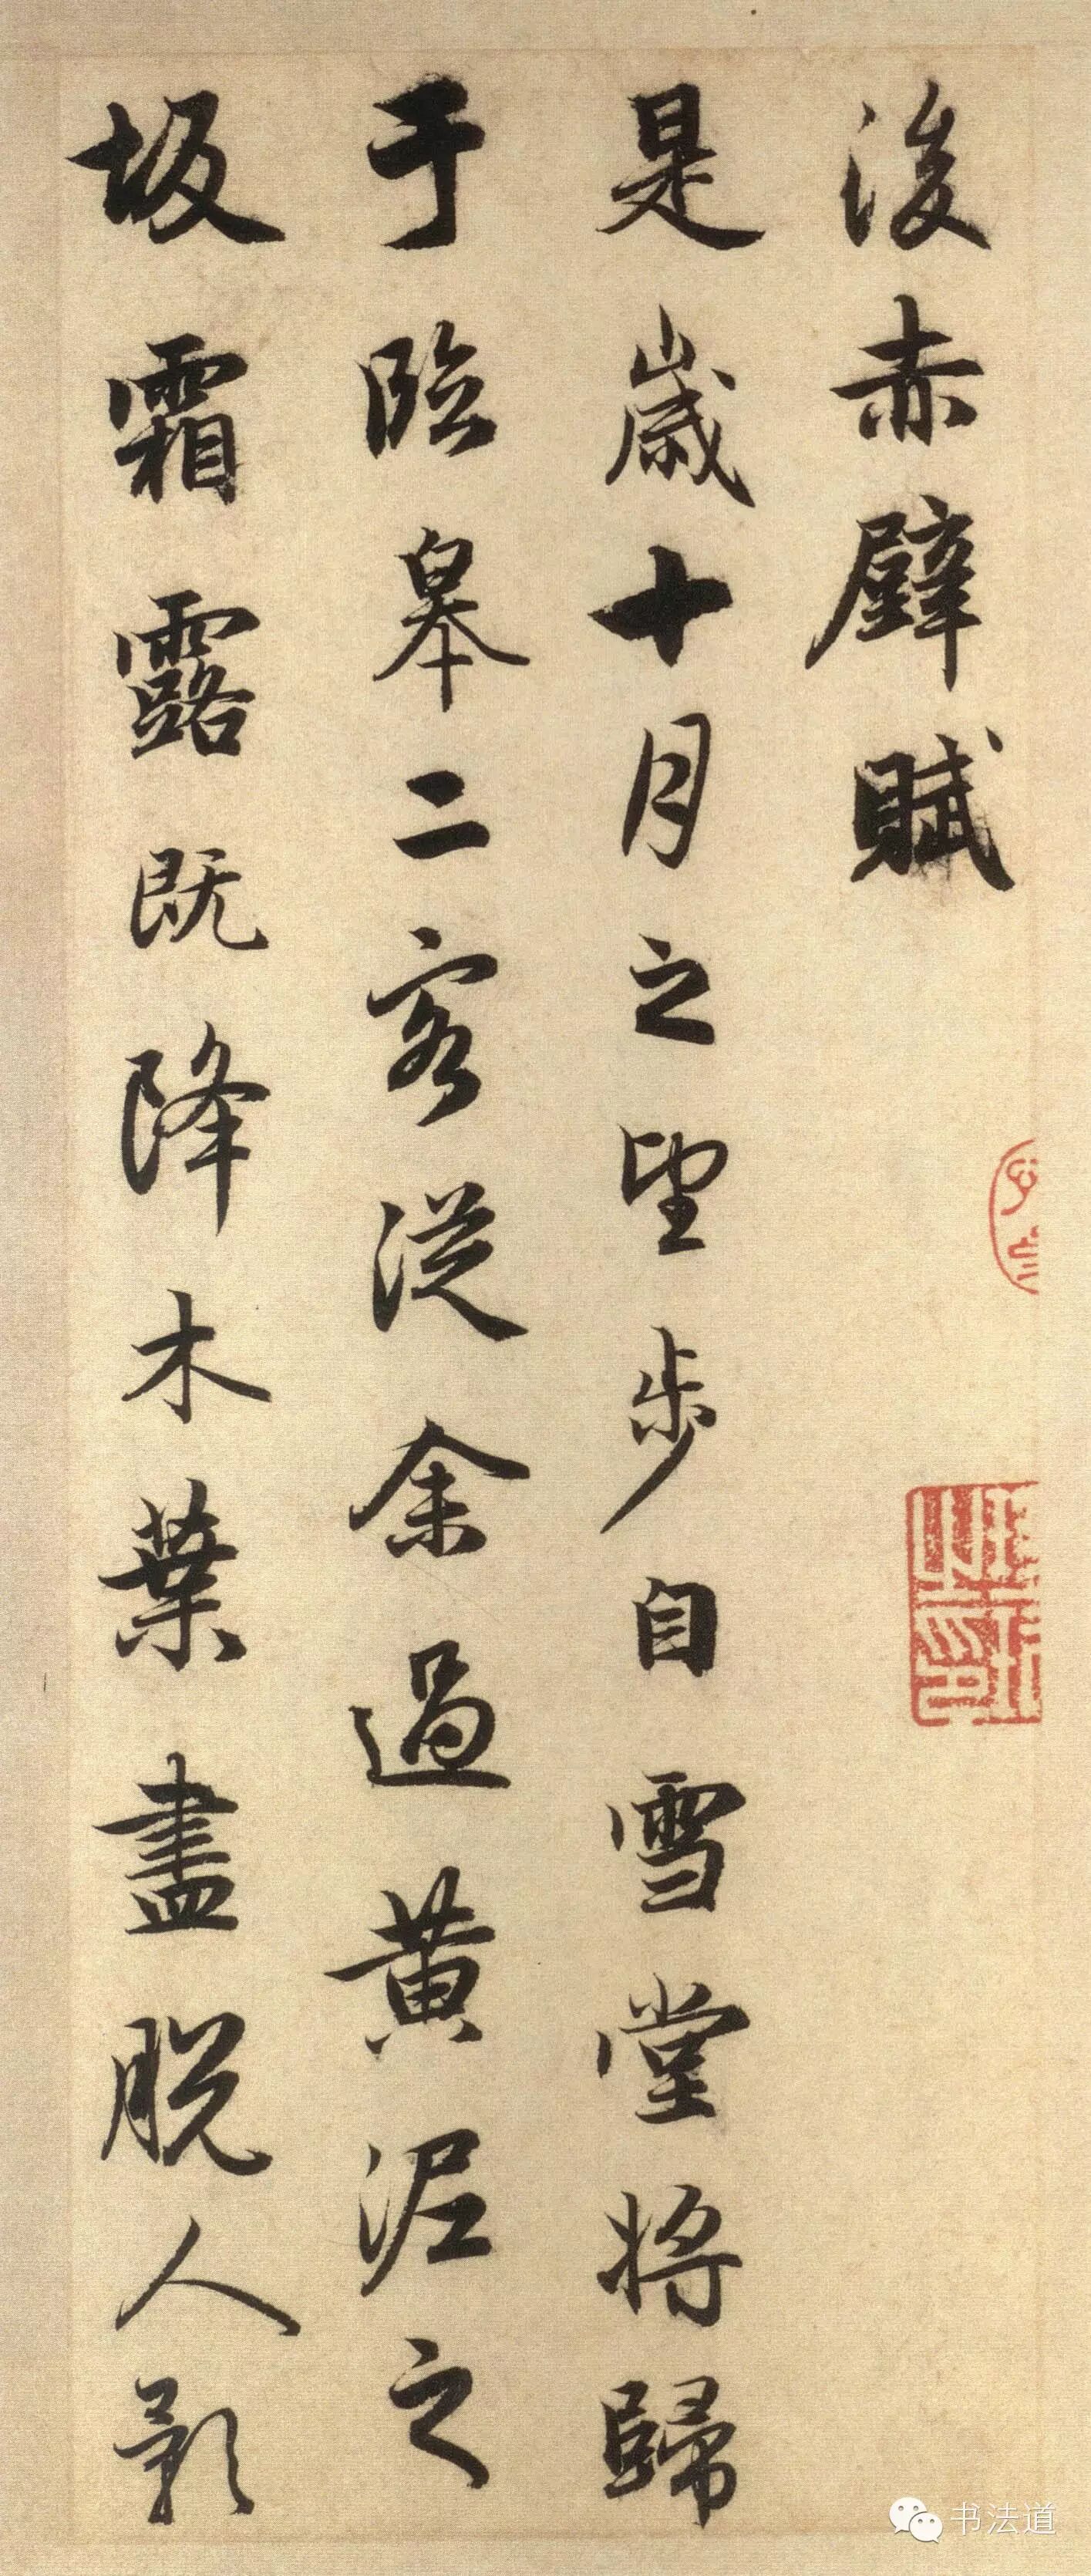 後赤壁賦
是歲十月之望步自雪堂將歸
于臨皋二客從余過黄泥之
坂霜露既降木葉盡脱人影
书法道